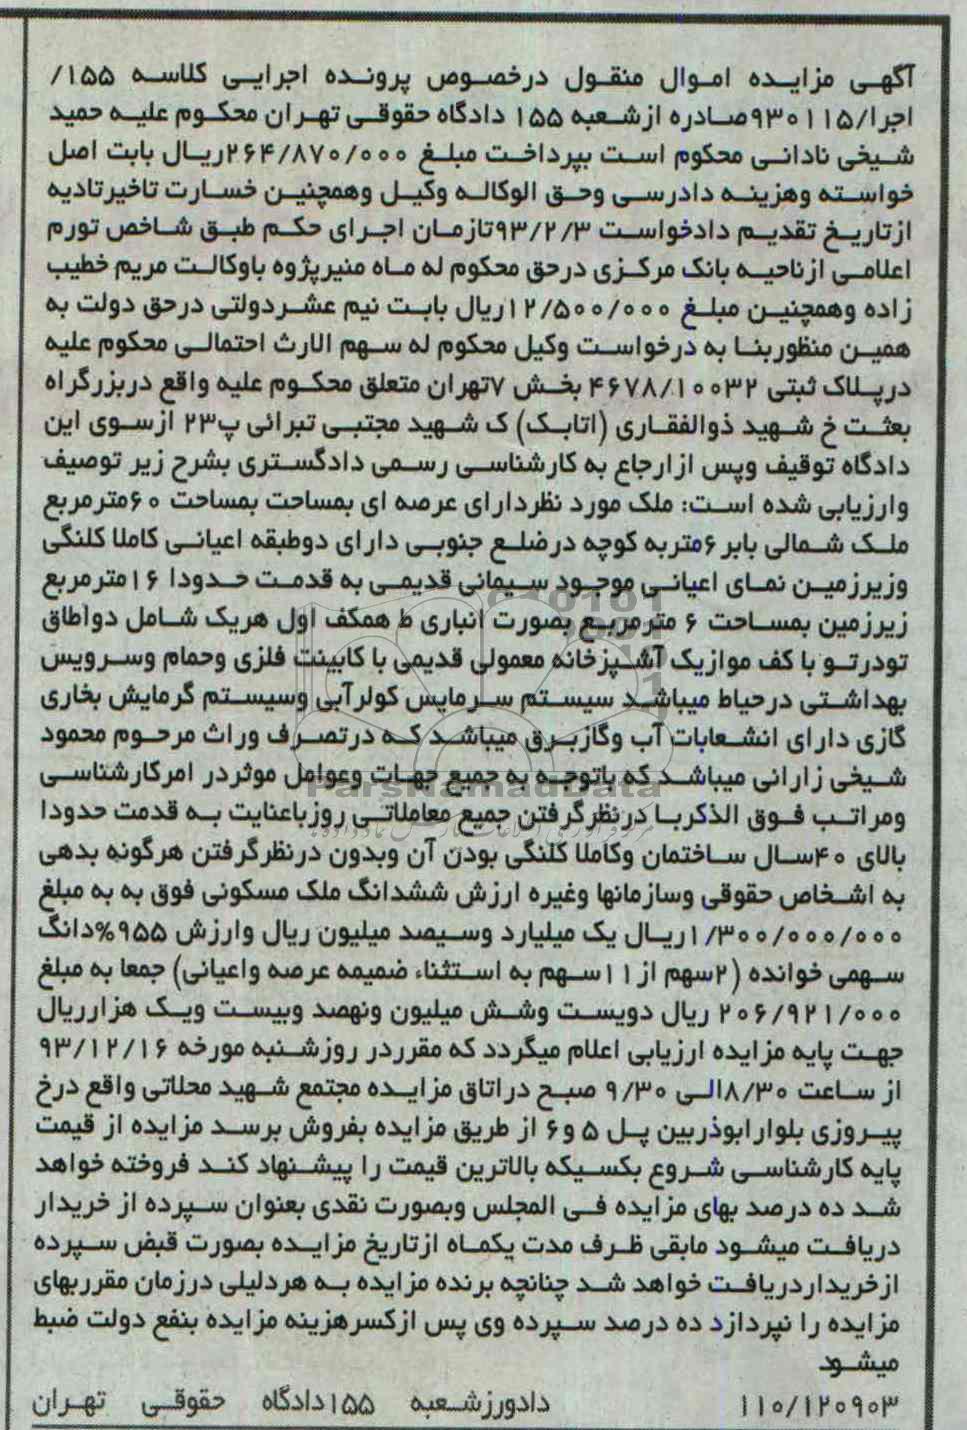 آگهی مزایده اموال منقول درخصوص پرونده اجرایی کلاسه ۱۵۵/
اجرا/۹۳۰۱۱۵صادره ازشعبه ۱۵۵ دادگاه حقوقی تهران محکوم علیه حمید
شیخی نادانی محکوم است بپرداخت مبلغ ۲۶۴/۸۷۰/۰۰۰ریال بابت اصل
خواسته وهزینه دادرسی وحق الوکاله وکیل وهمچنین خسارت تاخیرتادیه
ازتاریخ تقدیم دادخواست ۹۳/۲/۳تازمان اجرای حکم طبق شاخص تورم
اعلامی ازناحیه بانک مرکزی درحق محکوم له ماه منیرپژوه باوکالت مریم خطیب
زاده وهمچنین مبلغ ۱۲/۵۰۰/۰۰۰ریال بابت نیم عشردولتی درحق دولت به
همین منظوربنا به درخواست وکیل محکوم له سهم الارث احتمالی محکوم علیه
درپلاک ثبتی ۴۶۷۸/۱۰۰۳۲ بخش ۷تهران متعلق محکوم علیه واقع دربزرگراه
بعثت خ شهید ذوالفقاری (اتابک) ک شهید مجتبی تبرائی پ۲۳ ازسوی این
دادگاه توقیف وپس ازارجاع به کارشناسی رسمی دادگستری بشرح زیر توصیف
وارزیابی شده است: ملک مورد نظردارای عرصه ای بمساحت بمساحت ۶۰مترمربع
ملک شمالی بابر ۶متربه کوچه درضلع جنوبی دارای دوطبقه اعیانی کاملا کلنگی
وزیرزمین نمای اعیانی موجود سیمانی قدیمی به قدمت حدودا ۱۶مترمربع
زیرزمین بمساحت ۶ مترمربع بصورت انباری ط همکف اول هریک شامل دواطاق
تودرتو با کف موازیک آشپزخانه معمولی قدیمی با کابینت فلزی وحمام وسرویس
بهداشتی درحیاط میباشد سیستم سرمایس کولرآبی وسیستم گرمایش بخاری
گازی دارای انشعابات آب وگازبرق میباشد که درتصرف وراث مرحوم محمود
شیخی زارانی میباشد که باتوجه به جمیع جهات وعوامل موثردر امرکارشناسی
ParsNamadData
ومراتب فوق الذکربا درنظرگرفتن جمیع معاملاتی روزباعنایت به قدمت حدودا
بالای ۴۰سال ساختمان وکاملا کلنگی بودن آن وبدون درنظرگرفتن هرگونه بدهی
به اشخاص حقوقی وسازمانها وغیره ارزش ششدانگ ملک مسکونی فوق به به مبلغ
۱/۳۰۰/۰۰۰/۰۰۰ریال یک میلیارد وسیصد میلیون ریال وارزش ۹۵۵%دانگ
سهمی خوانده (۲سهم از۱۱سهم به استثناء ضمیمه عرصه واعیانی) جمعا به مبلغ
۲۰۶/۹۲۱/۰۰۰ ریال دویست وشش میلیون ونهصد وبیست ویک هزارریال
جهت پایه مزایده ارزیابی اعلام میگردد که مقرردر روزشنبه مورخه ۹۳/۱۲/۱۶
از ساعت ۸/۳۰الی ۹/۳۰ صبح دراتاق مزایده مجتمع شهید محلاتی واقع درخ
پیروزی بلوارابوذربین پل ۵ و۶ از طریق مزایده بفروش برسد مزایده از قیمت
پایه کارشناسی شروع بکسیکه بالاترین قیمت را پیشنهاد کند فروخته خواهد
شد ده درصد بهای مزایده فی المجلس وبصورت نقدی بعنوان سپرده از خریدار
دریافت میشود مابقی ظرف مدت یکماه ازتاریخ مزایده بصورت قبض سپرده
ازخریداردریافت خواهد شد چنانچه برنده مزایده به هردلیلی درزمان مقرربهای
مزایده را نپردازد ده درصد سپرده وی پس ازکسرهزینه مزایده بنفع دولت ضبط
میشود
۱۱۰/۱۲۰۹۰۳ دادورزشعبه ۱۵۵دادگاه حقوقی تهران